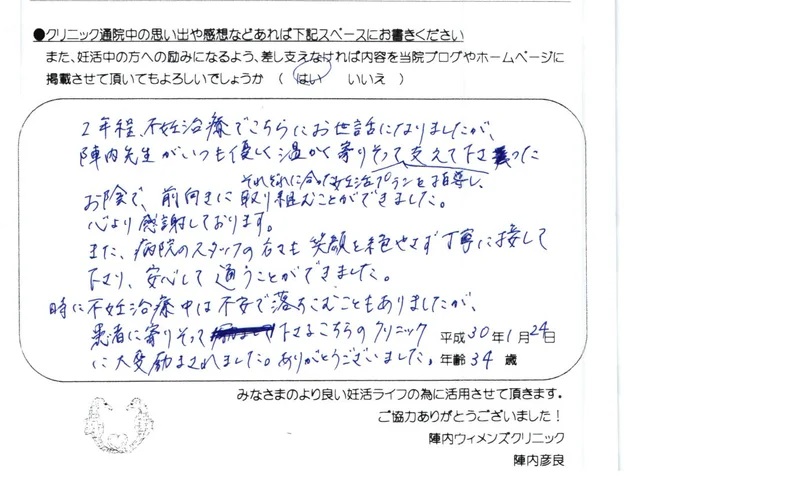 ●クリニック通院中の思い出や感想などあれば下記スペースにお書きください
また、妊活中の方への励みになるよう、差し支えなければ内容を当院ブログやホームページに
掲載させて頂いてもよろしいでしょうか （ はい いいえ ）
2年程、不妊治療でこちらにお世話になりましたが、
陣内先生がいつも優しく温かく寄りそって、支えて下さった
それぞれに合った妊活プランを指導し、
お陰で、前向きに取り組むことができました。
心より感謝しております。
また、病院のスタッフの方々も笑顔を絶やさず丁寧に接して
下さり、安心して通うことができました。
時に不妊治療中は不安で落ちこむこともありましたが、
患者に寄りそって下さるこちらのクリニック
に大変励まされました。ありがとうございました。
平成30年1月24日
年齢34歳
みなさまのより良い妊活ライフの為に活用させて頂きます。
ご協力ありがとうございました！
陣内ウィメンズクリニック
陣内彦良